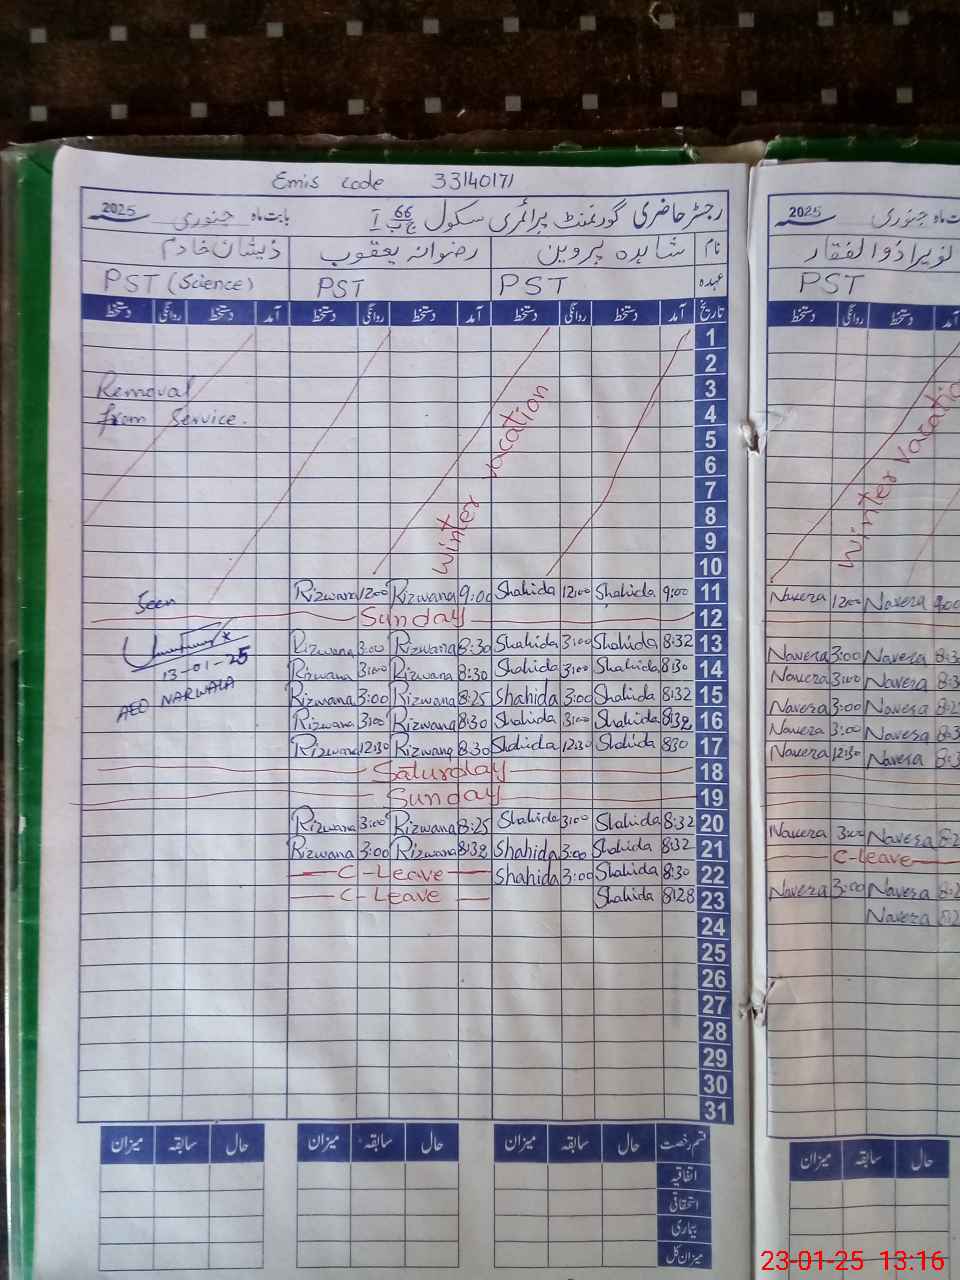 Emis code 33140171
رجسٹر حاضری گورنمنٹ پرائمری سکول 66 ج ب آ بابت ماہ جنوری 2025
نام شاہدہ پروین رضوانہ یعقوب ذیشان خادم
عہدہ PST PST PST (Science)
تاریخ آمد دستخط روانگی دستخط آمد دستخط روانگی دستخط آمد دستخط روانگی دستخط
1
2
3 Removal
4 from Service.
5
6
7
8
9
10
Winter vacation
11 9:00 Shahida 12:00 Shahida 9:00 Rizwana 12:00 Rizwana Seen
12 Sunday
13 8:32 Shahida 3:00 Shahida 8:30 Rizwana 3:00 Rizwana
13-01-25
14 8:30 Shahida 3:00 Shahida 8:30 Rizwana 3:00 Rizwana
AEO NARWALA
15 8:32 Shahida 3:00 Shahida 8:25 Rizwana 3:00 Rizwana
16 8:32 Shahida 3:00 Shahida 8:30 Rizwana 3:00 Rizwana
17 8:30 Shahida 12:30 Shahida 8:30 Rizwana 12:30 Rizwana
18 Saturday
19 Sunday
20 8:32 Shahida 3:00 Shahida 8:25 Rizwana 3:00 Rizwana
21 8:32 Shahida 3:00 Shahida 8:32 Rizwana 3:00 Rizwana
22 8:30 Shahida 3:00 Shahida C-Leave
23 8:28 Shahida C-Leave
24
25
26
27
28
29
30
31
قسم رخصت حال سابقہ میزان حال سابقہ میزان حال سابقہ میزان
اتفاقیہ
استحقاقی
بیماری
میزان کل
ماہ جنوری 2025
نویرا ذوالفقار
PST
آمد دستخط روانگی دستخط
Winter Vacation
9:00 Navera 12:00 Navera
Navera 3:00 Navera
Navera 3:00 Navera
Navera 3:00 Navera
Navera 3:00 Navera
Navera 12:30 Navera
Navera 3:00 Navera
C-Leave
Navera 3:00 Navera
Navera
حال سابقہ میزان
23-01-25 13:16